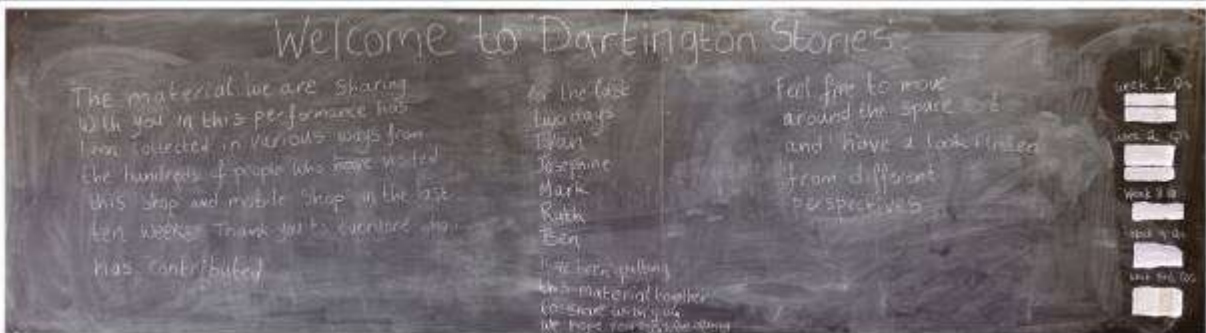 Welcome to Dartington Stories
The material we are sharing
with you in this performance has
been collected in various ways from
the hundreds of people who have visited
this shop and mobile shop in the last
ten weeks. Thank you to everyone who
has contributed
for the last
two days
Josephine
Mark
Ruth
Ben
been putting
this material together
to share with you
we hope you
Feel free to move
around the space
and have a look / listen
from different
perspectives
week 1 Qs
week 2 Qs
week 3 Qs
week 4 Qs